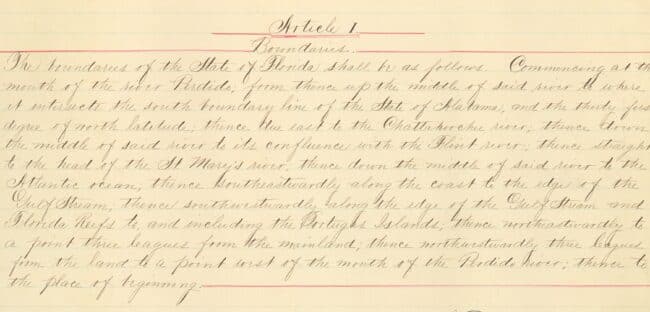 Article 1.
Boundaries.
The boundaries of the State of Florida shall be as follows. Commencing at the
mouth of the river Perdido; from thence up the middle of said river to where
it intersects the south boundary line of the State of Alabama, and the thirty first
degree of north latitude; thence due east to the Chattahoochee river; thence down
the middle of said river to its confluence with the Flint river; thence straight
to the head of the St Mary's river; thence down the middle of said river to the
Atlantic ocean; thence southeastwardly along the coast to the edge of the
Gulf Stream; thence southwestwardly along the edge of the Gulf Stream and
Florida Reefs to, and including the Tortugas Islands; thence northeastwardly to
a point three leagues from the mainland; thence northwestwardly three leagues
from the land to a point west of the mouth of the Perdido river; thence to
the place of beginning.